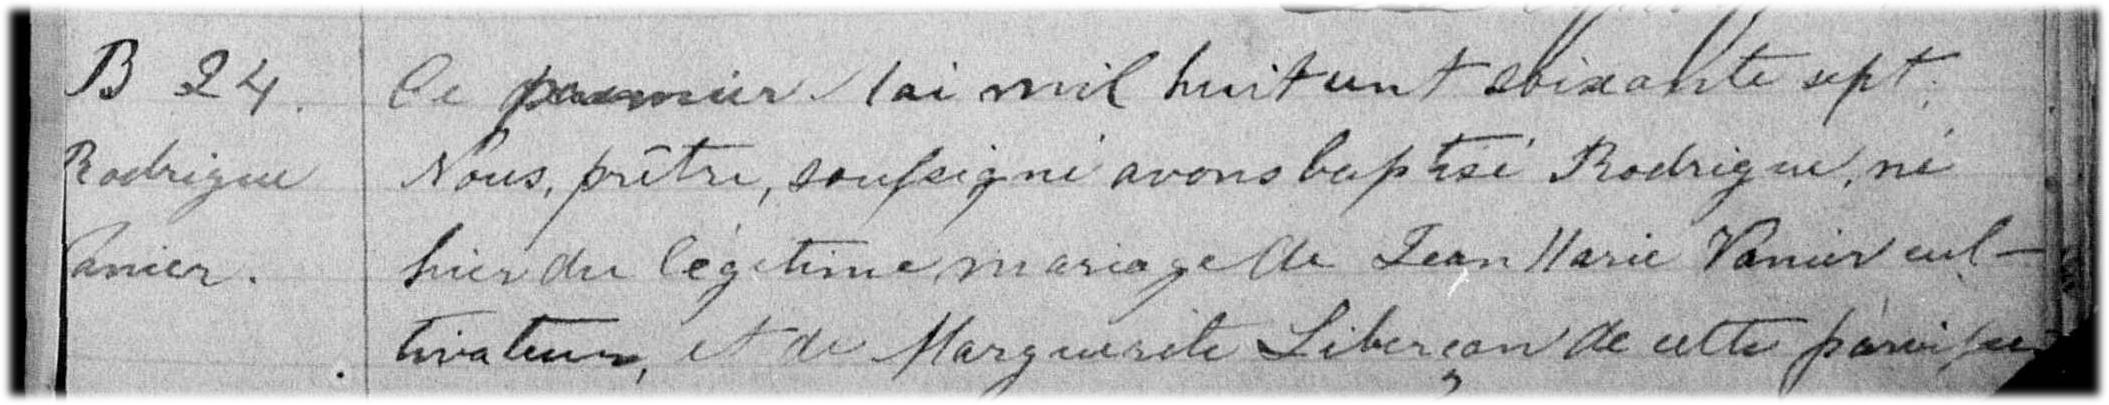 B 24.
Rodrigue
anier.
Ce premier Mai mil huit cent soixante sept.
Nous, prêtre, soussigné avons baptisé Rodrigue, né
hier du légitime mariage de Jean Marie Vanier cul-
tivateur, et de Marguerite Liberçan de cette paroisse